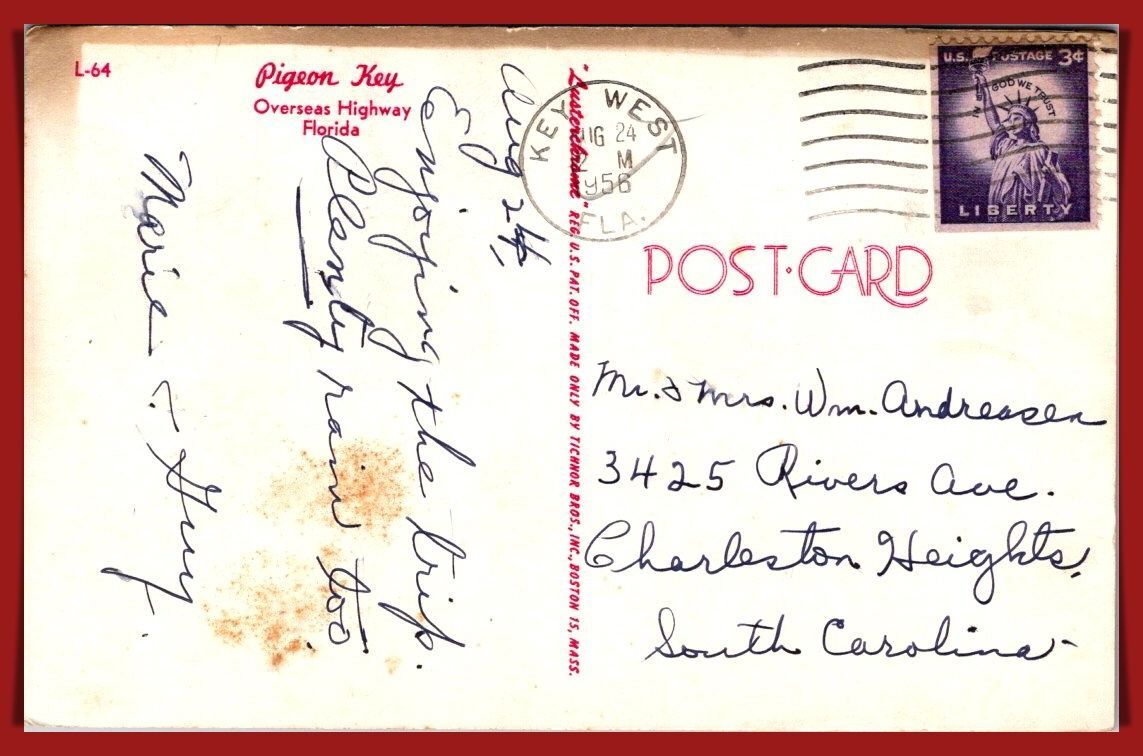 L-64
Pigeon Key
Overseas Highway
Florida
Aug 24,
Enjoying the trip.
Plenty rain too
Marie &
"Lusterchrome" REG U.S. PAT. OFF. MADE ONLY BY TICHNOR BROS., INC., BOSTON 15, MASS.
KEY WEST
AUG 24
M
1956
FLA.
U.S. POSTAGE 3¢
IN GOD WE TRUST
LIBERTY
POST·CARD
Mr. & Mrs. Wm. Andreasen
3425 Rivers Ave.
Charleston Heights,
South Carolina